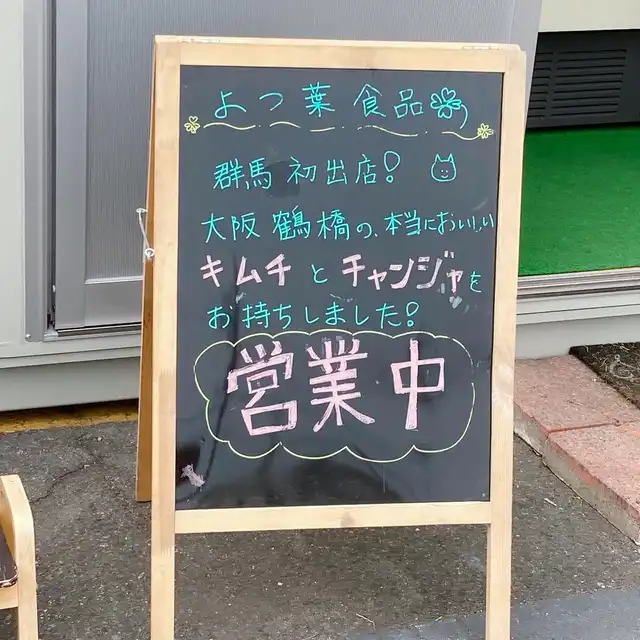 よつ葉食品
群馬初出店!
大阪鶴橋の、本当においしい
キムチとチャンジャを
お持ちしました!
営業中